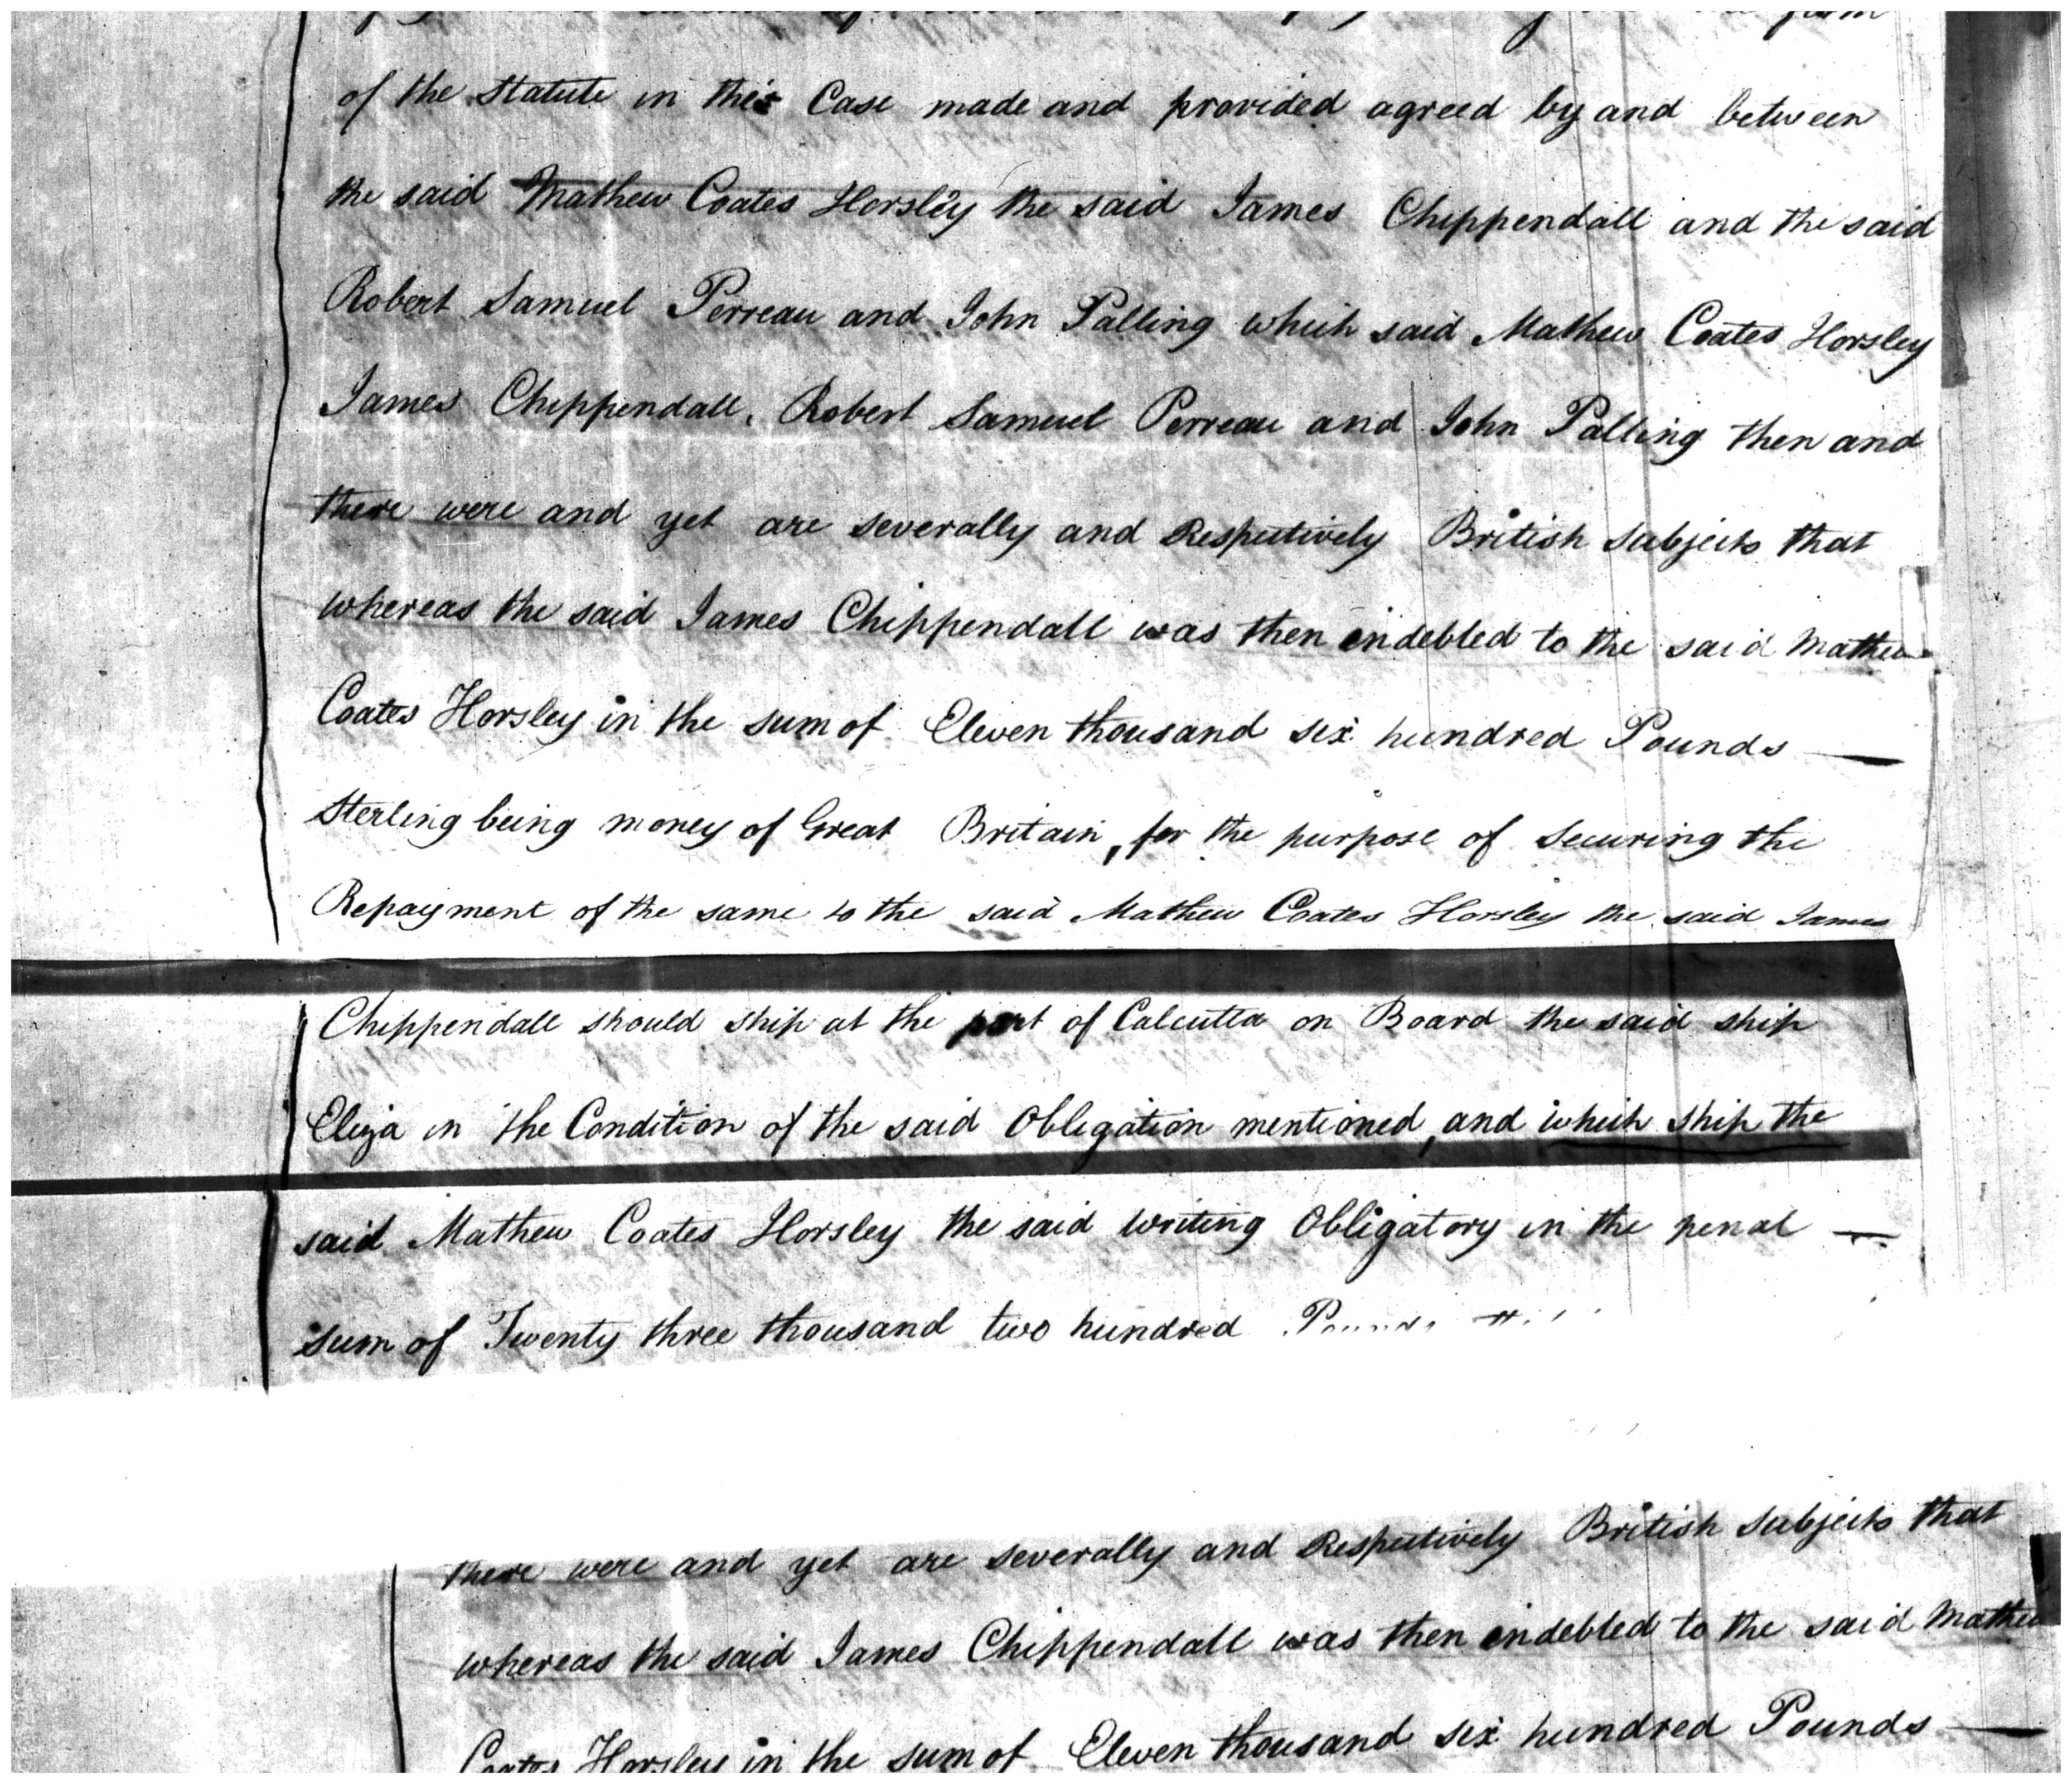 form
of the Statute in this Case made and provided agreed by and between
the said Mathew Coates Horsley the said James Chippendall and the said
Robert Samuel Perreau and John Palling which said Mathew Coates Horsley
James Chippendall, Robert Samuel Perreau and John Palling then and
there were and yet are severally and Respectively British subjects that
whereas the said James Chippendall was then indebted to the said Mathew
Coates Horsley in the sum of Eleven thousand six hundred Pounds —
Sterling being money of Great Britain, for the purpose of securing the
Repayment of the same to the said Mathew Coates Horsley the said James
Chippendall should ship at the port of Calcutta on Board the said ship
Eliza in the Condition of the said Obligation mentioned, and which ship the
said Mathew Coates Horsley the said writing Obligatory in the penal —
sum of Twenty three thousand two hundred Pounds
there were and yet are severally and Respectively British subjects that
whereas the said James Chippendall was then indebted to the said Mathew
Coates Horsley in the sum of Eleven thousand six hundred Pounds —